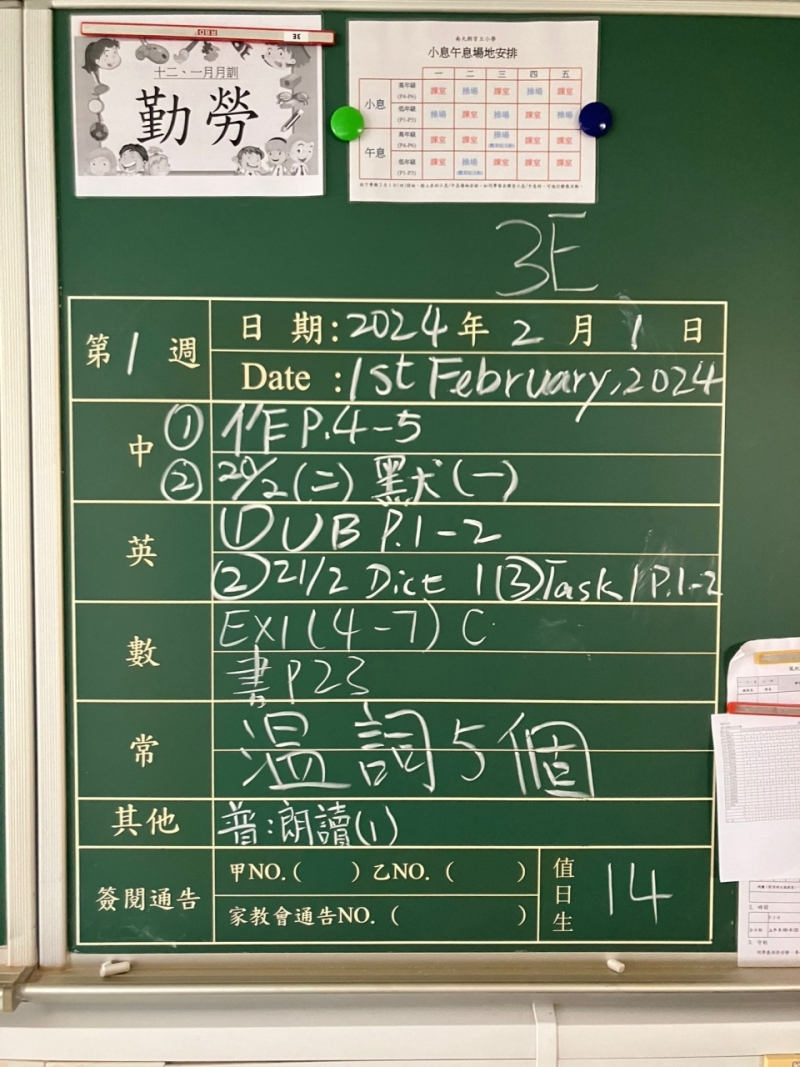 3E
十二、一月月訓
勤勞
小息午息場地安排
一 二 三 四 五
小息 高年級 (P4-P6) 課室 操場 課室 操場 課室
低年級 (P1-P3) 操場 課室 操場 課室 操場
午息 高年級 (P4-P6) 課室 課室 操場 課室 課室
低年級 (P1-P3) 課室 操場 課室 課室 課室
3E
第1週 日期:2024年2月1日
Date :1st February, 2024
中 ① 作P.4-5
② 20/2(二) 默(一)
英 ① UB P.1-2
② 21/2 Dict 1 ③ Task 1 P.1-2
數 EX1(4-7) C
書P23
常 温詞5個
其他 普:朗讀(1)
簽閱通告 甲NO.( ) 乙NO.( )
家教會通告NO.( )
值日生 14